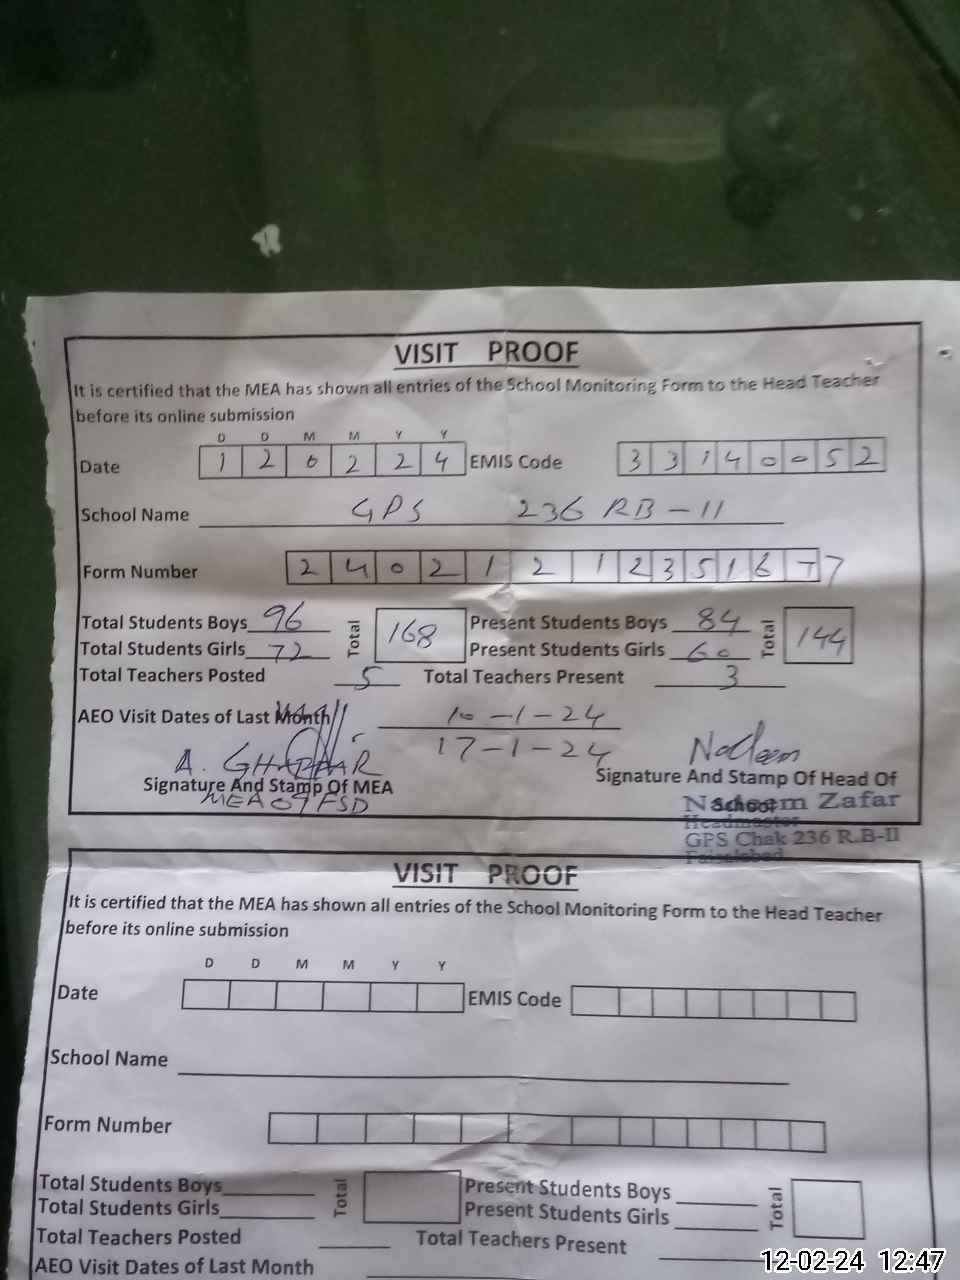 VISIT PROOF
It is certified that the MEA has shown all entries of the School Monitoring Form to the Head Teacher
before its online submission
D D M M Y Y
Date 1 2 0 2 2 4 EMIS Code 3 3 1 4 0 0 5 2
School Name GPS 236 RB - II
Form Number 2 4 0 2 1 2 1 2 3 5 1 6 7 7
Total Students Boys 96 Total 168 Present Students Boys 84 Total 144
Total Students Girls 72 Present Students Girls 60
Total Teachers Posted 5 Total Teachers Present 3
AEO Visit Dates of Last Month 10-1-24
17-1-24
A. GHAFFAR Nadeem
Signature And Stamp Of MEA Signature And Stamp Of Head Of
School
MEA 09 FSD Nadeem Zafar
Headmaster
GPS Chak 236 R.B-II
Faisalabad
VISIT PROOF
It is certified that the MEA has shown all entries of the School Monitoring Form to the Head Teacher
before its online submission
D D M M Y Y
Date EMIS Code
School Name
Form Number
Total Students Boys Total Present Students Boys Total
Total Students Girls Present Students Girls
Total Teachers Posted Total Teachers Present
AEO Visit Dates of Last Month
12-02-24 12:47